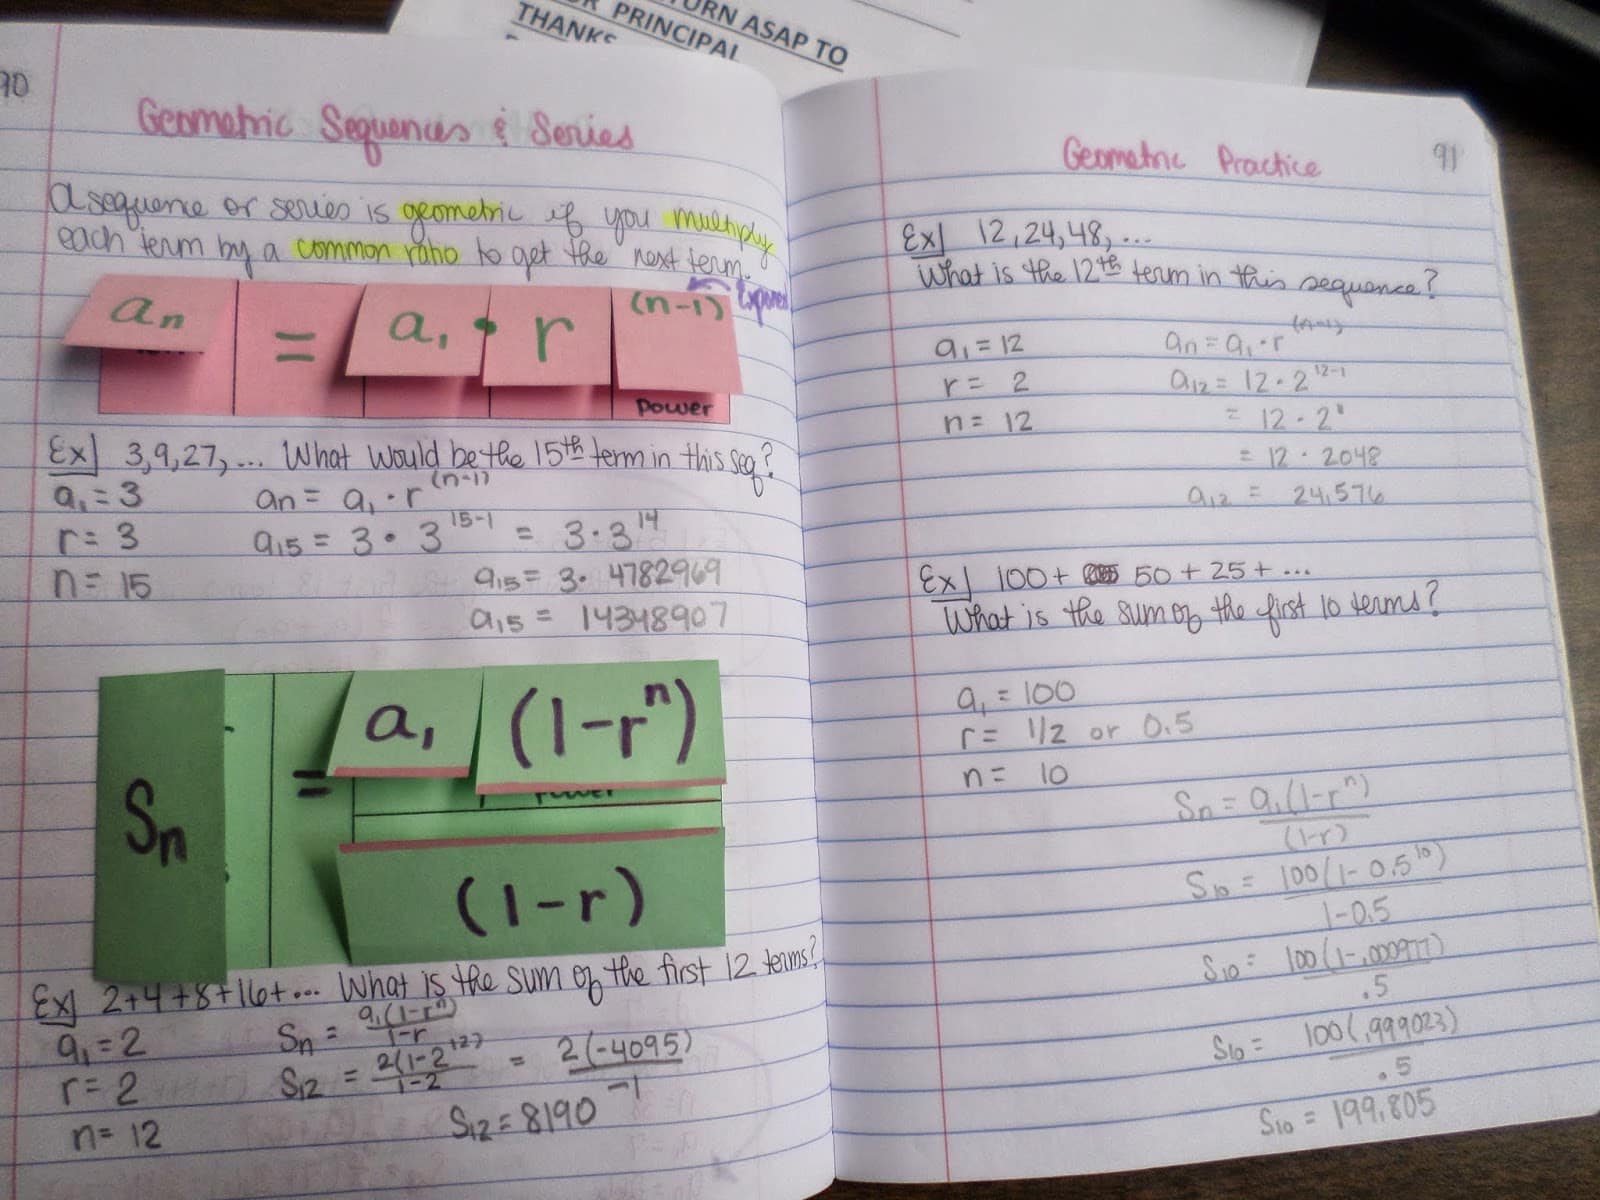 TURN ASAP TO
PRINCIPAL
THANKS
90
Geometric Sequences & Series
A sequence or series is geometric if you multiply
each term by a common ratio to get the next term.
an = a₁ • r (n-1)
power
Ex] 3,9,27,... What would be the 15th term in this seq?
a₁ = 3
an = a₁ · r^(n-1)
r = 3
a15 = 3 • 3^15-1 = 3·3^14
n = 15
a15 = 3· 4782969
a15 = 14348907
Sn = a₁ (1-rⁿ)
power
(1-r)
Ex] 2+4+8+16+... What is the sum of the first 12 terms?
a₁ = 2
Sn = a₁(1-rⁿ)
1-r
r = 2
S12 = 2(1-2^12) = 2(-4095)
1-2
-1
n = 12
S12 = 8190
Geometric Practice
91
Ex] 12,24,48,...
What is the 12th term in this sequence?
a₁ = 12
an = a₁ · r^(n-1)
r = 2
a12 = 12 · 2^12-1
n = 12
= 12 · 2^11
= 12 · 2048
a12 = 24,576
Ex] 100 + 50 + 25 + ...
What is the sum of the first 10 terms?
a₁ = 100
r = 1/2 or 0.5
n = 10
Sn = a₁(1-rⁿ)
(1-r)
S10 = 100(1-0.5^10)
1-0.5
S10 = 100(1-.000977)
.5
S10 = 100(.999023)
.5
S10 = 199.805